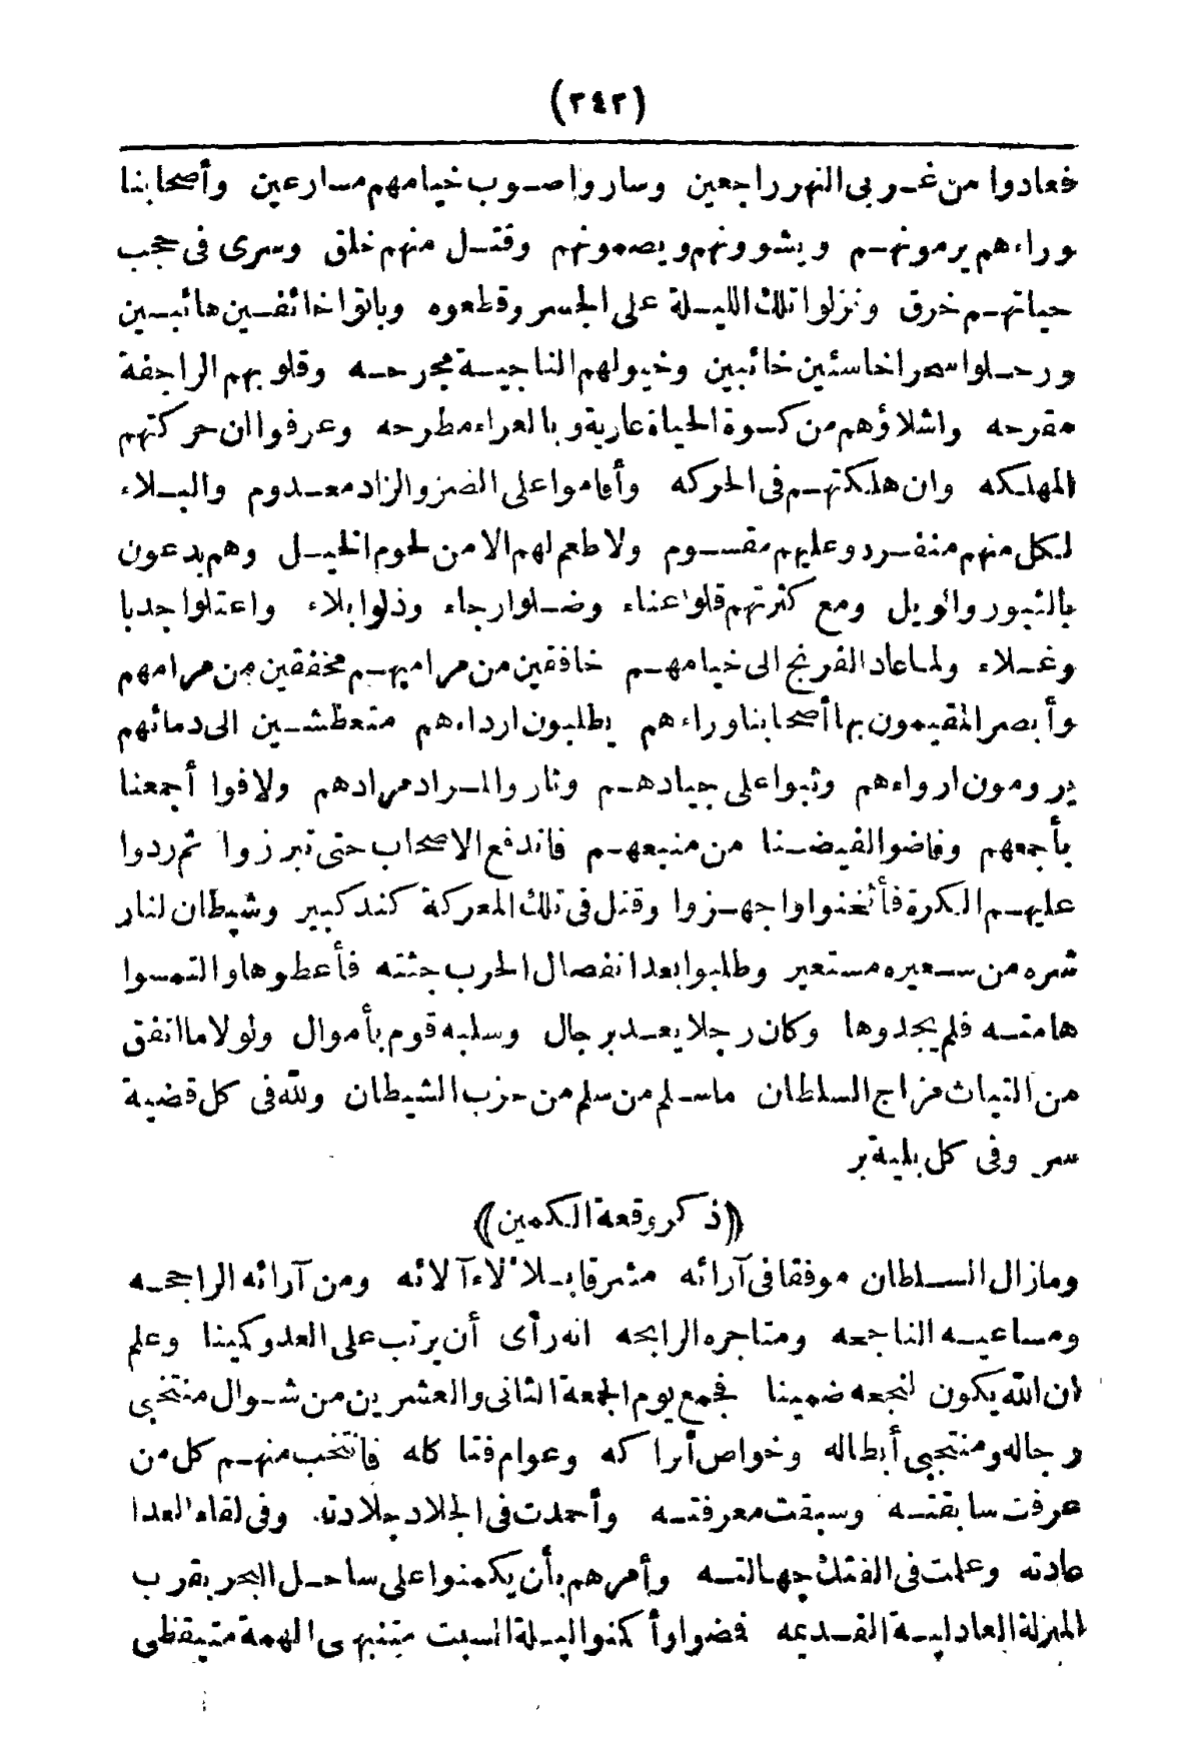 (٣٤٢)
فعادوا من غربى النهر راجعين وساروا صوب خيامهم مسارعين وأصحابنا
وراءهم يرمونهم ويشوونهم ويصمونهم وقتل منهم خلق وسرى فى حجب
حياتهم خرق ونزلوا تلك الليلة على الجسر وقطعوه وباتوا خائفين هائبين
ورحلوا سحرا خاسئين خائبين وخيولهم الناجية مجرحه وقلوبهم الراجفة
مقرحه واشلاؤهم من كسوة الحياة عارية وبالعراء مطرحه وعرفوا ان حركتهم
المهلكه وان هلكتهم فى الحركه وأقاموا على الضر والزاد معدوم والبلاء
لكل منهم منفرد وعليهم مقسوم ولا طعم لهم الا من لحوم الخيل وهم يدعون
بالثبور والويل ومع كثرتهم قلوا عناء وضلوا رجاء وذلوا بلاء واعتلوا جدبا
وغلاء ولما عاد الفرنج الى خيامهم خافقين من مراميهم مخفقين من مرامهم
وأبصر المقيمون بها أصحابنا وراءهم يطلبون ارداءهم متعطشين الى دمائهم
يرومون ارواءهم وثبوا على جيادهم وثاروا لمراد مرادهم ولافوا أجمعنا
بأجمعهم وفاضوا لفيضنا من منبعهم فاندفع الاصحاب حتى تبرزوا ثم ردوا
عليهم الكرة فأثخنوا واجهزوا وقتل فى تلك المعركة كند كبير وشيطان لنار
شره من سعيره مستعير وطلبوا بعد انفصال الحرب جثته فأعطوها والتمسوا
هامته فلم يجدوها وكان رجلا يعد برجال وسلبه قوم بأموال ولولا ما اتفق
من التياث مزاج السلطان ما سلم من سلم من حزب الشيطان ولله فى كل قضية
سر وفى كل بلية بر
((ذكر وقعة الكمين))
وما زال السلطان موفقا فى آرائه مشرقا بلألاء آلائه ومن آرائه الراجحه
ومساعيه الناجعه ومتاجره الرابحه انه رأى أن يرتب على العدو كمينا وعلم
ان الله يكون لنجحه ضمينا فجمع يوم الجمعة الثانى والعشرين من شوال منتخبى
رجاله ومنتجبى أبطاله وخواص أتراكه وعوام فتاكه فانتخب منهم كل من
عرفت سابقته وسبقت معرفته وأحمدت فى الجلاد جلادته وفى لقاء العدا
عادته وعلمت فى الفتك جهالته وأمرهم بأن يكمنوا على ساحل البحر بقرب
المنزلة العادلية القديمه فمضوا وأكمنوا ليلة السبت متنبهى الهمة متيقظى